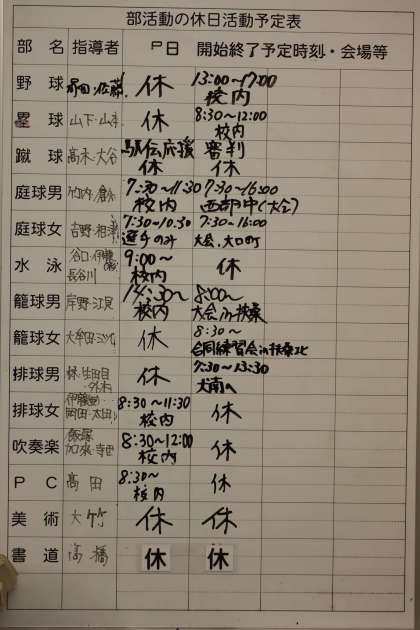 部活動の休日活動予定表
部 名 指導者 月日 開始終了予定時刻・会場等
野 球 休 13:00~17:00
校内
塁 球 山下・山本 休 8:30~12:00
校内
蹴 球 高木・大谷 駅伝応援 審判
休 休
庭球男 竹内 7:30~11:30 7:30~16:00
校内 西部中(大会)
庭球女 吉野・相澤 7:30~10:30 7:30~16:00
選手のみ 大会、大口町
水 泳 谷口・伊藤 9:00~ 休
長谷川 校内
籠球男 岸野・江見 14:30~ 8:00~
校内 大会in扶桑
籠球女 大牟田・三ツ松 休 8:30~
合同練習会in扶桑北
排球男 生田目 休 7:30~13:30
外村 犬南へ
排球女 伊藤 8:30~11:30 休
岡田・太田 校内
吹奏楽 飯塚 8:30~12:00 休
加来・寺西 校内
P C 高田 8:30~ 休
校内
美 術 大竹 休 休
書 道 高橋 休 休